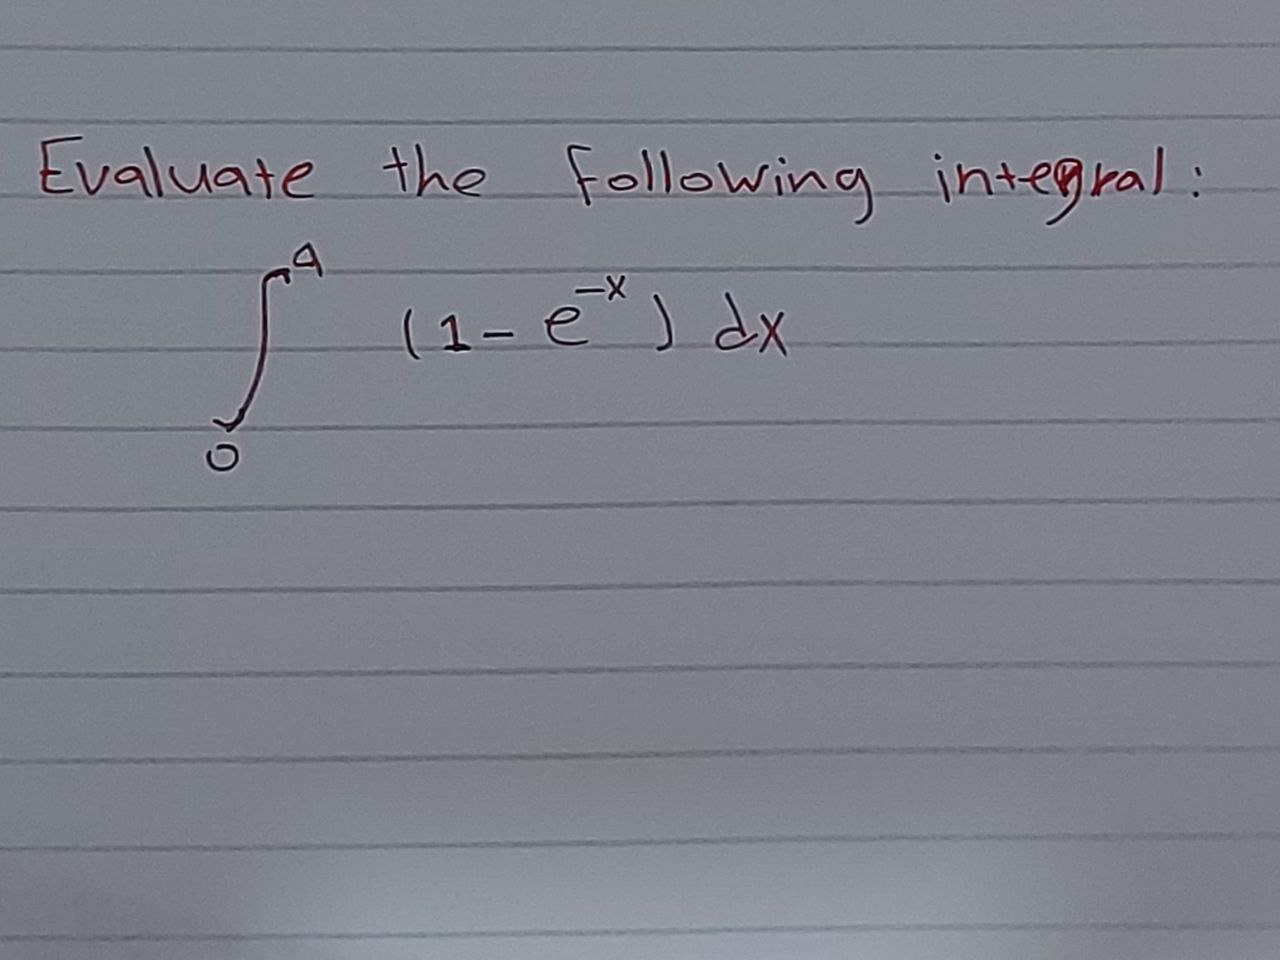 Evaluate the following integral:
∫₀⁴ (1 - e⁻ˣ) dx